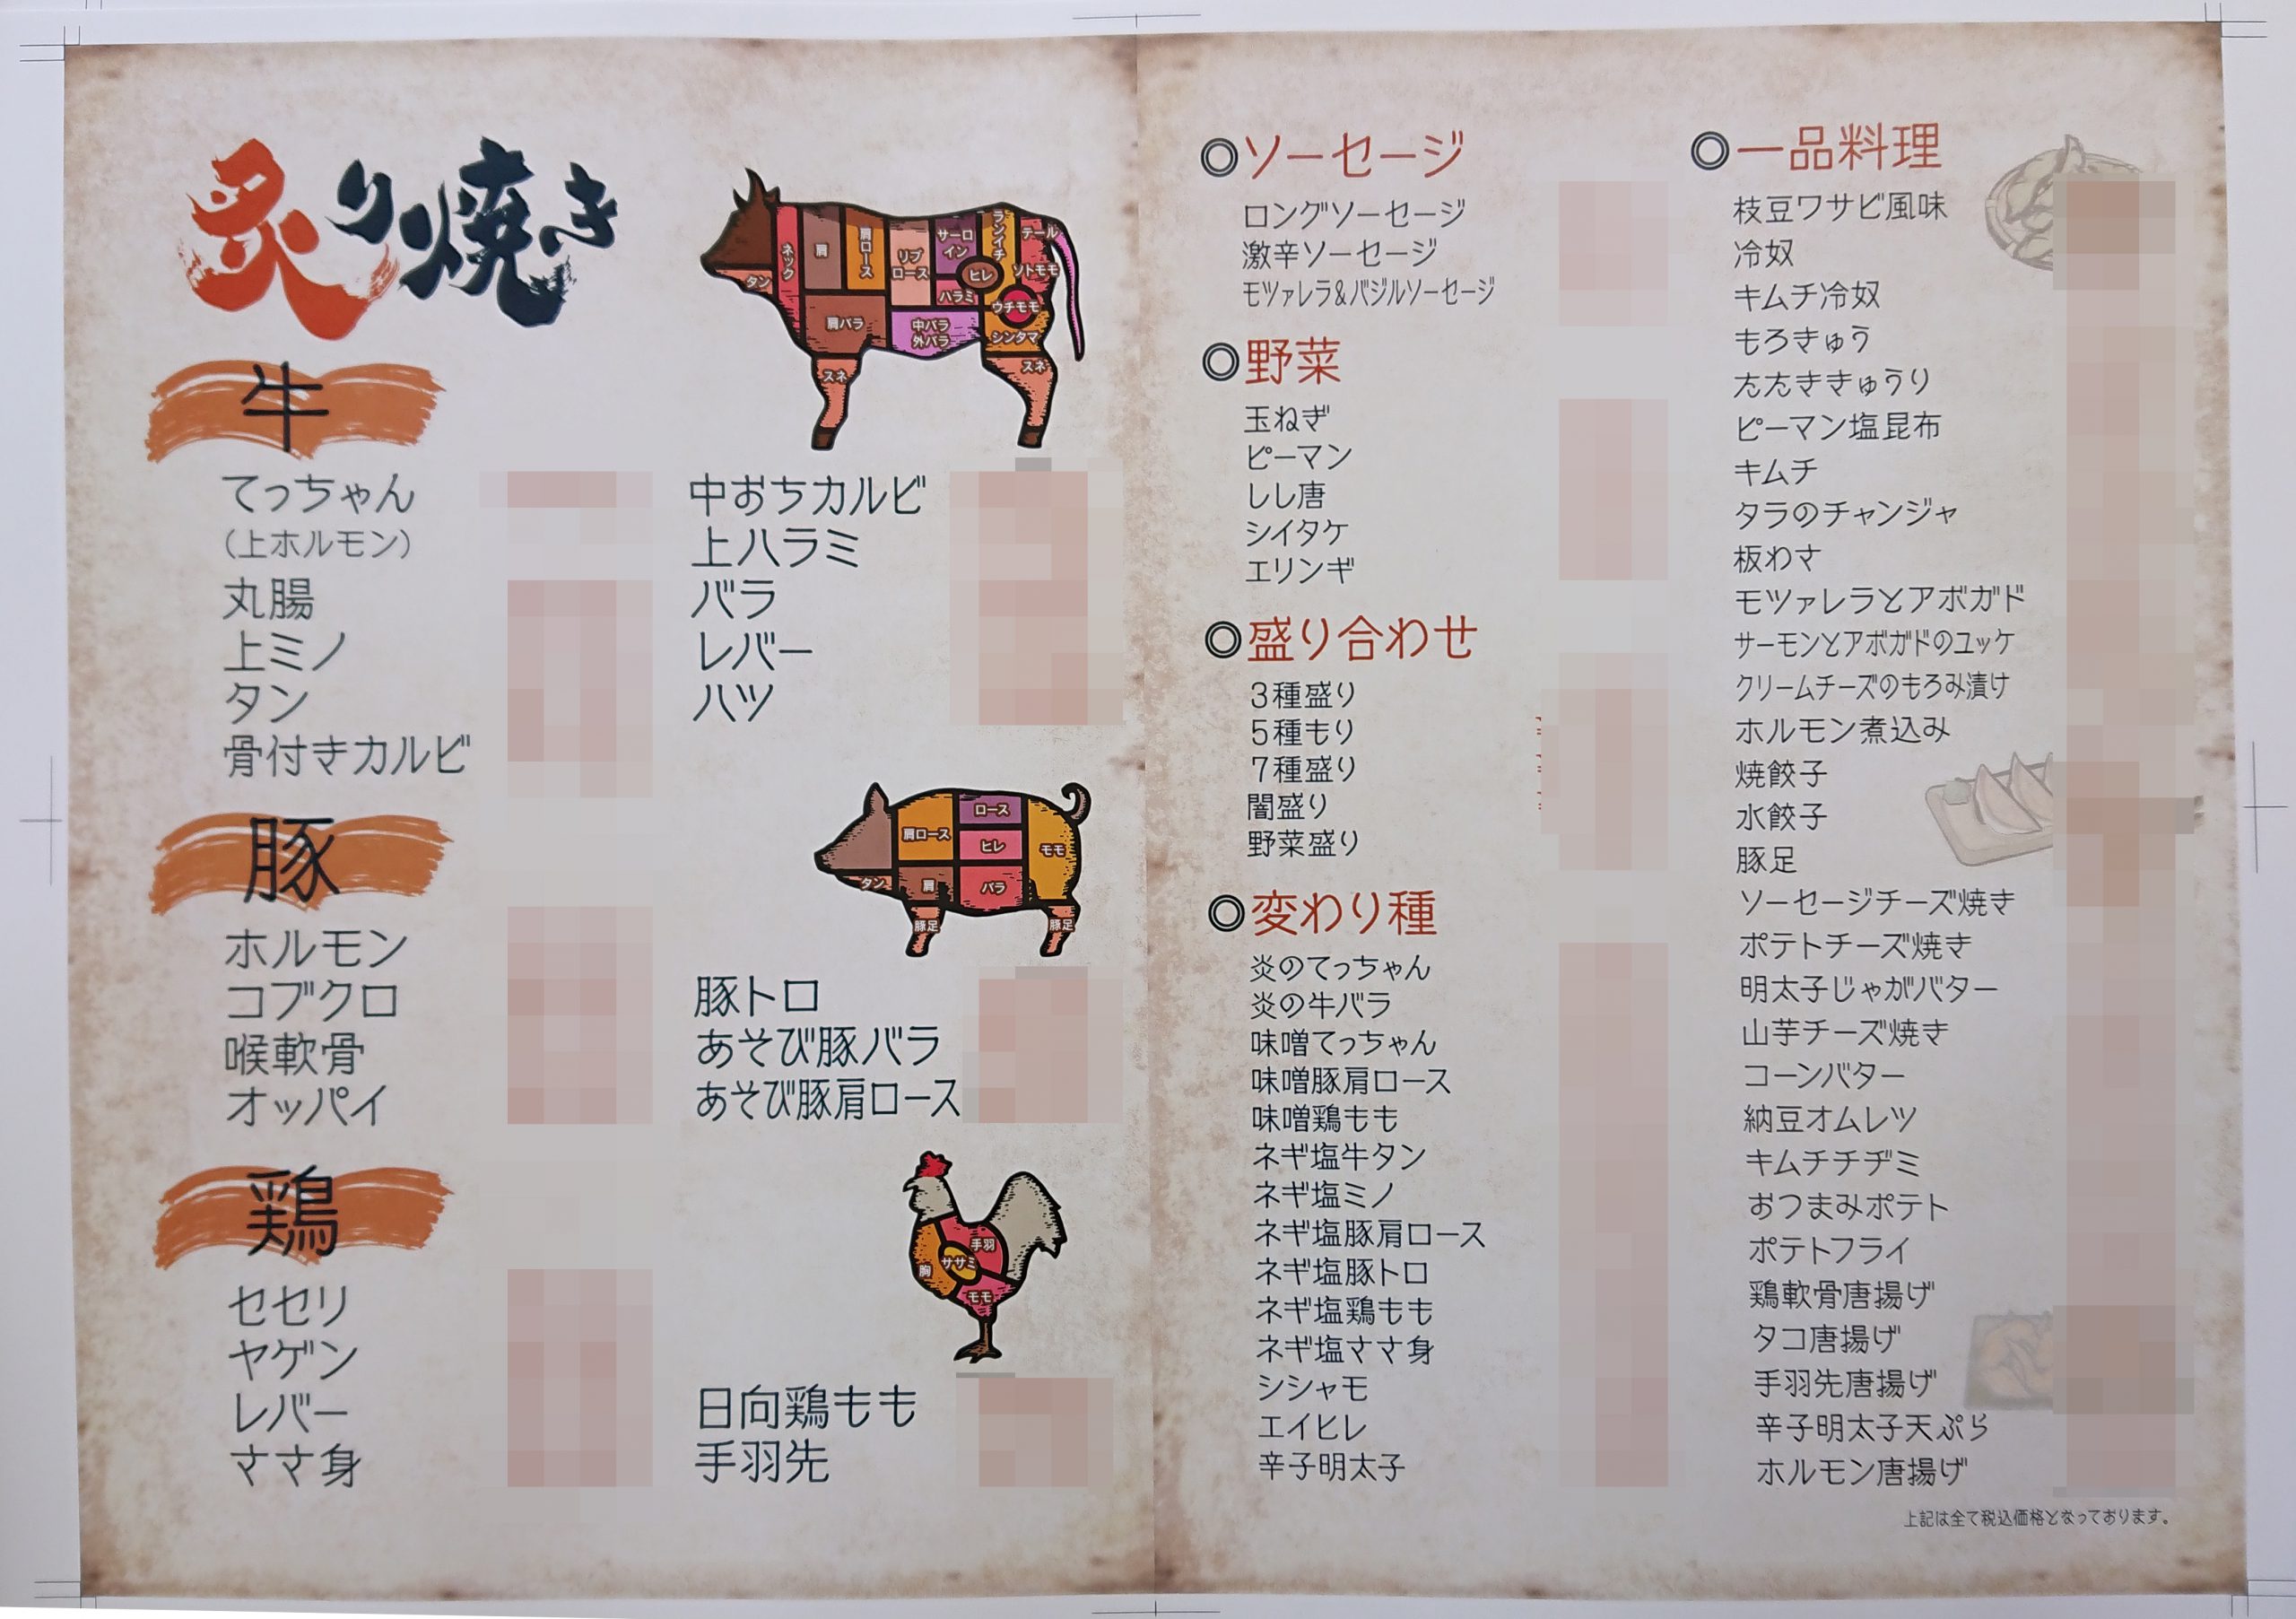 炙り焼き
牛
てっちゃん
(上ホルモン)
丸腸
上ミノ
タン
骨付きカルビ
ネック
肩
肩ロース
リブロース
サーロイン
ランイチ
テール
ヒレ
ソトモモ
タン
ハラミ
ウチモモ
肩バラ
中バラ
外バラ
シンタマ
スネ
スネ
中おちカルビ
上ハラミ
バラ
レバー
ハツ
豚
ホルモン
コブクロ
喉軟骨
オッパイ
ロース
肩ロース
ヒレ
モモ
タン
肩
バラ
豚足
豚足
豚トロ
あそび豚バラ
あそび豚肩ロース
鶏
セセリ
ヤゲン
レバー
ささ身
手羽
ササミ
胸
モモ
日向鶏もも
手羽先
◎ソーセージ
ロングソーセージ
激辛ソーセージ
モツァレラ&バジルソーセージ
◎野菜
玉ねぎ
ピーマン
しし唐
シイタケ
エリンギ
◎盛り合わせ
3種盛り
5種もり
7種盛り
闇盛り
野菜盛り
◎変わり種
炎のてっちゃん
炎の牛バラ
味噌てっちゃん
味噌豚肩ロース
味噌鶏もも
ネギ塩牛タン
ネギ塩ミノ
ネギ塩豚肩ロース
ネギ塩豚トロ
ネギ塩鶏もも
ネギ塩ささ身
シシャモ
エイヒレ
辛子明太子
◎一品料理
枝豆ワサビ風味
冷奴
キムチ冷奴
もろきゅう
たたききゅうり
ピーマン塩昆布
キムチ
タラのチャンジャ
板わさ
モツァレラとアボガド
サーモンとアボガドのユッケ
クリームチーズのもろみ漬け
ホルモン煮込み
焼餃子
水餃子
豚足
ソーセージチーズ焼き
ポテトチーズ焼き
明太子じゃがバター
山芋チーズ焼き
コーンバター
納豆オムレツ
キムチチヂミ
おつまみポテト
ポテトフライ
鶏軟骨唐揚げ
タコ唐揚げ
手羽先唐揚げ
辛子明太子天ぷら
ホルモン唐揚げ
上記は全て税込価格となっております。